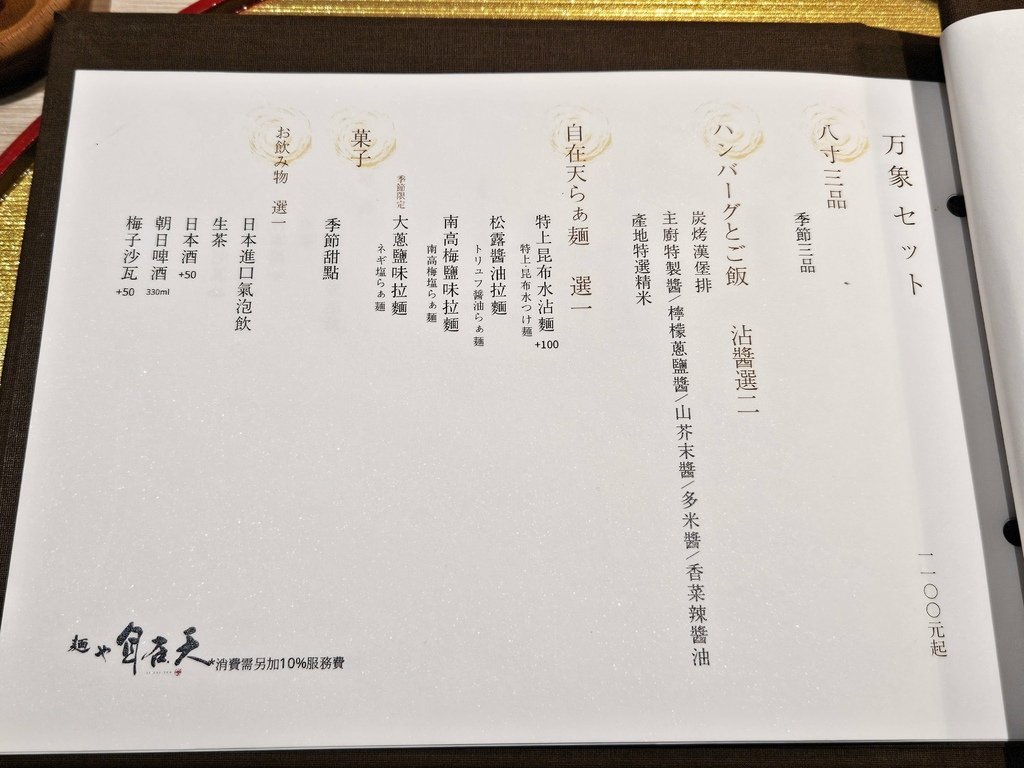 万象セット
一一〇〇元起
八寸三品
季節三品
ハンバーグとご飯 沾醬選二
炭烤漢堡排
主廚特製醬/檸檬蔥鹽醬/山芥末醬/多米醬/香菜辣醬油
產地特選精米
自在天らぁ麺 選一
特上昆布水沾麵 +100
特上昆布水つけ麺
松露醬油拉麵
トリュフ醤油らぁ麺
南高梅鹽味拉麵
南高梅塩らぁ麺
季節限定
大蔥鹽味拉麵
ネギ塩らぁ麺
菓子
季節甜點
お飲み物 選一
日本進口氣泡飲
生茶
日本酒 +50
朝日啤酒 330ml
梅子沙瓦 +50
麺や自在天
*消費需另加10%服務費